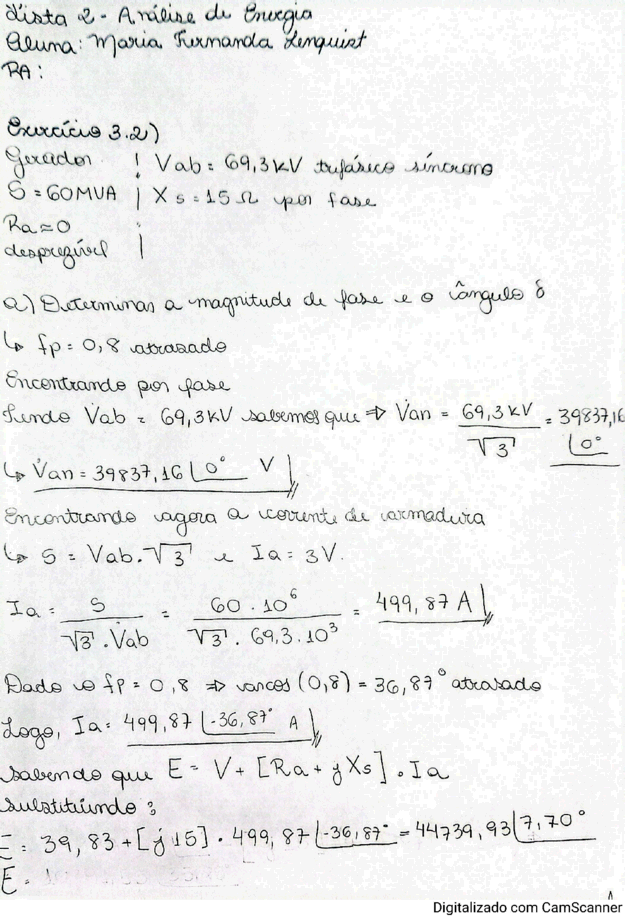 Lista 2 - Análise de Energia
Aluna: Maria Fernanda Lenquist
RA:
Exercício 3.2)
Gerador | Vab = 69,3 kV trifásico síncrono
S = 60MVA | Xs = 15 Ω por fase
Ra ≈ 0
desprezível
a) Determinas a magnitude de fase e o ângulo δ
↳ fp = 0,8 atrasado
Encontrando por fase
Sendo Vab = 69,3 kV sabemos que ⇒ Van = 69,3 kV / √3 = 39837,16 ∠0°
↳ Van = 39837,16 ∠0° V
Encontrando agora a corrente de armadura
↳ S = Vab.√3 e Ia = 3V.
Ia = S / √3 . Vab = 60 . 10⁶ / √3 . 69,3 . 10³ = 499,87 A
Dado o fp = 0,8 ⇒ arcos (0,8) = 36,87° atrasado
Logo, Ia = 499,87 ∠-36,87° A
Sabendo que E = V + [Ra + jXs] . Ia
Substituindo:
E = 39,83 + [j15] . 499,87 ∠-36,87° = 44739,93 ∠7,70°
E =
Digitalizado com CamScanner